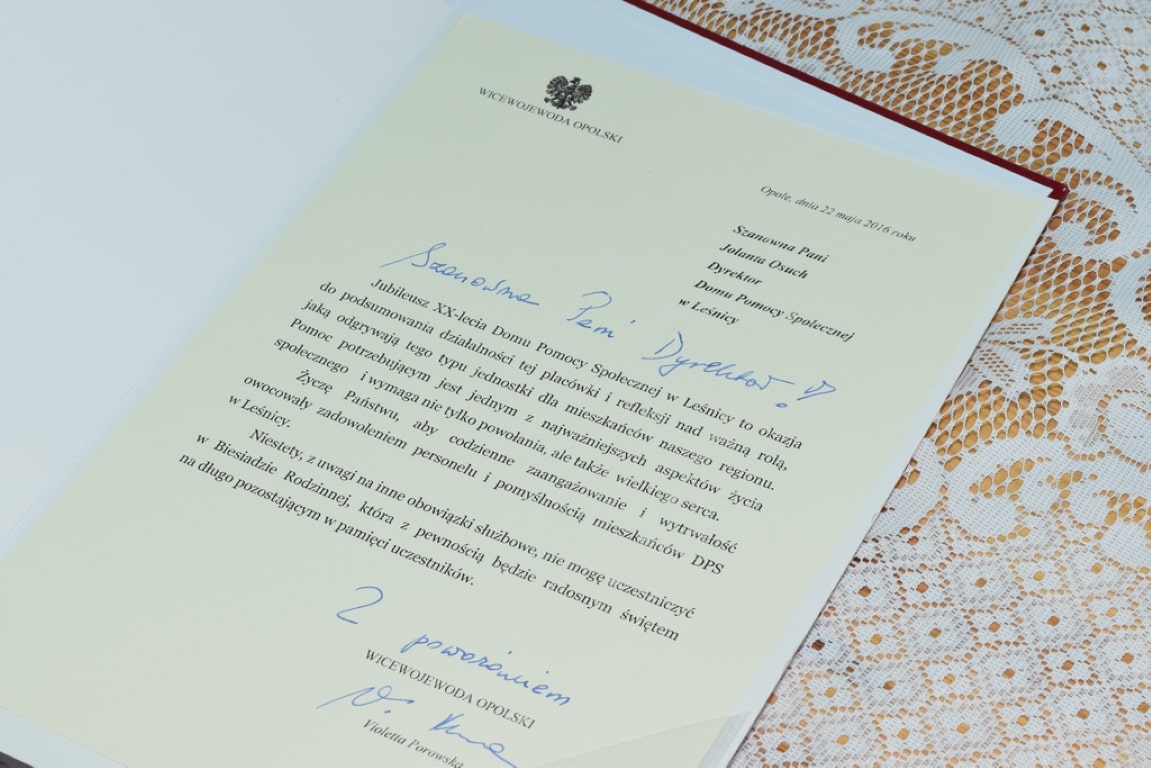 WICEWOJEWODA OPOLSKI
Opole, dnia 22 maja 2016 roku
Szanowna Pani
Jolanta Osuch
Dyrektor
Domu Pomocy Społecznej
w Leśnicy
Szanowna Pani Dyrektor!
Jubileusz XX-lecia Domu Pomocy Społecznej w Leśnicy to okazja
do podsumowania działalności tej placówki i refleksji nad ważną rolą,
jaką odgrywają tego typu jednostki dla mieszkańców naszego regionu.
Pomoc potrzebującym jest jednym z najważniejszych aspektów życia
społecznego i wymaga nie tylko powołania, ale także wielkiego serca.
Życzę Państwu, aby codzienne zaangażowanie i wytrwałość
owocowały zadowoleniem personelu i pomyślnością mieszkańców DPS
w Leśnicy.
Niestety, z uwagi na inne obowiązki służbowe, nie mogę uczestniczyć
w Biesiadzie Rodzinnej, która z pewnością będzie radosnym świętem
na długo pozostającym w pamięci uczestników.
Z poważaniem
WICEWOJEWODA OPOLSKI
Violetta Porowska